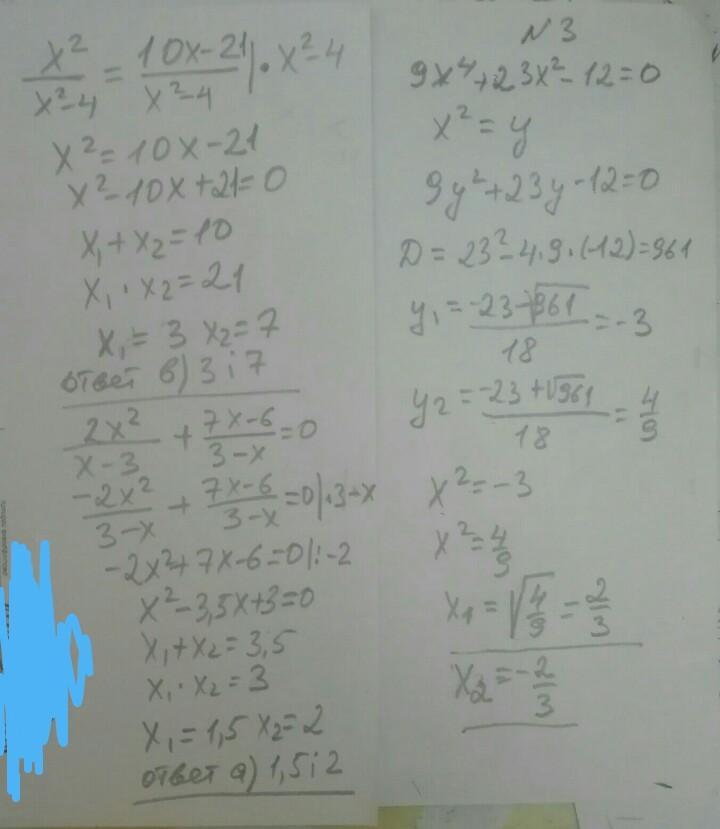 x²/(x²-4) = (10x-21)/(x²-4) | · x²-4
x² = 10x-21
x²-10x+21=0
x₁+x₂=10
x₁·x₂=21
x₁=3 x₂=7
ответ в) 3 i 7
2x²/(x-3) + (7x-6)/(3-x) = 0
-2x²/(3-x) + (7x-6)/(3-x) = 0 | ·3-x
-2x²+7x-6=0 | :-2
x²-3,5x+3=0
x₁+x₂=3,5
x₁·x₂=3
x₁=1,5 x₂=2
ответ а) 1,5 i 2
N3
9x⁴+23x²-12=0
x²=y
9y²+23y-12=0
D=23²-4·9·(-12)=961
y₁=(-23-√961)/18=-3
y₂=(-23+√961)/18=4/9
x²=-3
x²=4/9
x₁=√(4/9)=2/3
x₂=-2/3